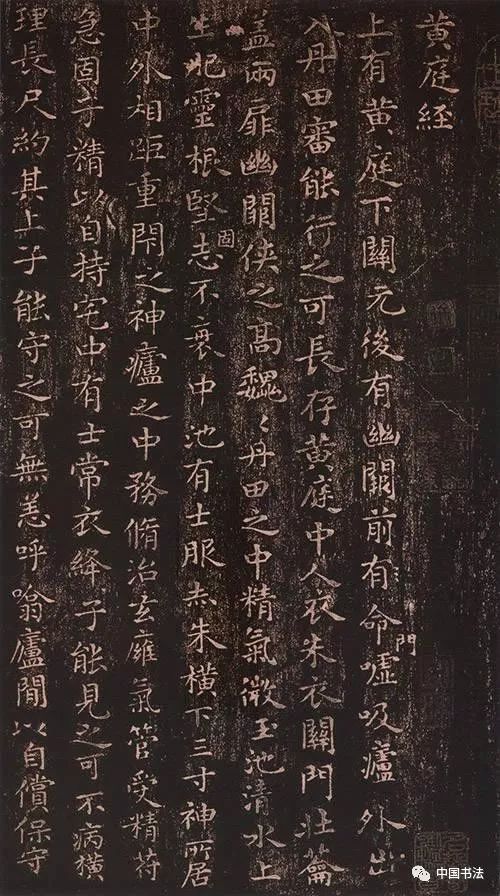 黄庭経
上有黄庭下關元後有幽闕前有命門噓吸廬外出
入丹田審能行之可長存黄庭中人衣朱衣關門壮籥
蓋兩扉幽闕俠之高魏〻丹田之中精氣微玉池清水上
生肥靈根堅固志不衰中池有士服赤朱横下三寸神所居
中外相距重閇之神廬之中務脩治玄廱氣管受精符
急固子精以自持宅中有士常衣絳子能見之可不病横
理長尺約其上子能守之可無恙呼噏廬間以自償保守
中国书法